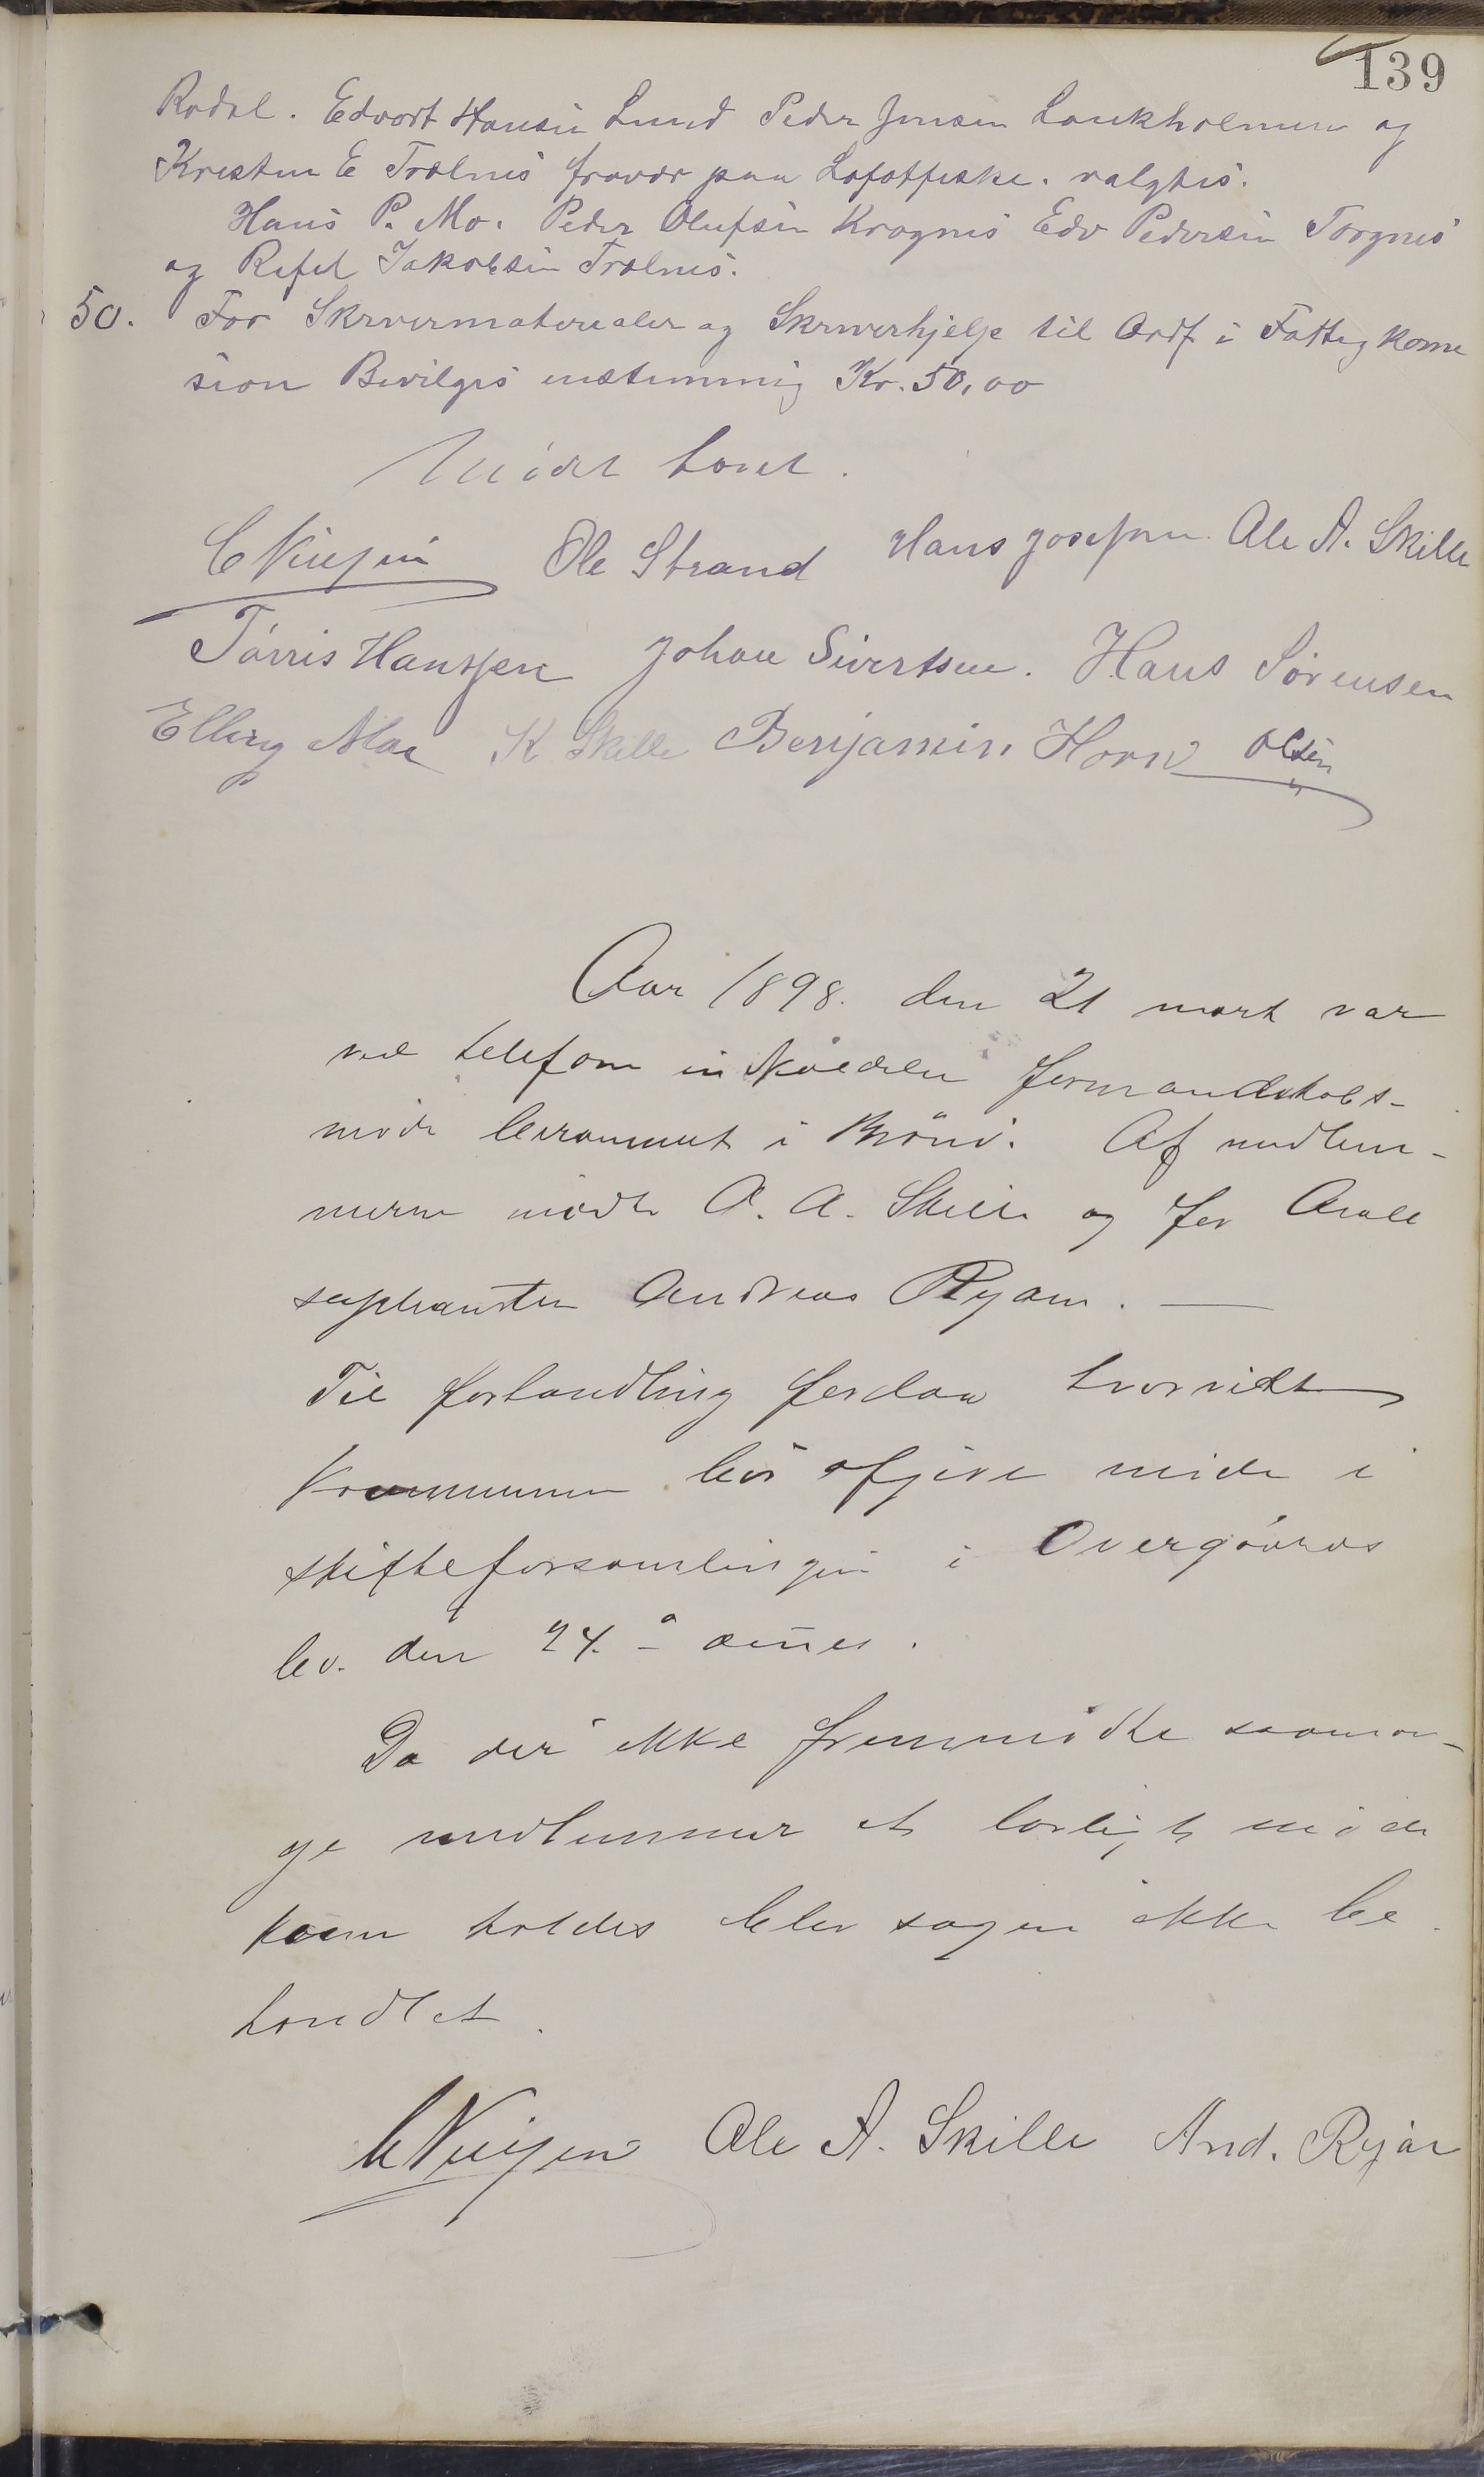 139
Rodal. Edvart Hansen Lund Peder Jensen Laukholmen og
Kresten E Trælnes fravær paa Lofotfiske. valgtes.
Hans P. Mo. Peder Olufsen Kragnes Edv Pedersen Torgnes
og Refel Jakobsen Trælnes.
50. For Skrivermaterialer og Skriverhjelp til Ordf i Fattigkome
sion Bevilges enstemmig Kr. 50,00
Mødet hævet.
Ole Strand Hans Josefsen Ole A. Skille
Tørris Hanssen Johan Sivertsen. Hans Sørensen
Elling Moe K Skille Benjamin Horn Olsen
Aar 1898. den 21 marts var
ved telefon indkaldt formandskabs-
møde berammet i Brönö. Af medlem-
merne mødte O. A. Skille og for Avall
suplianten Andreas Ryan.
Til forhandling forelaa hvorvidt
kommunen bør afgive møde i
skifteforsamlingen i Overgaards
bo. den 24. - dennes.
Da der ikke fremmødte saaman-
ge medlemmer at lovligt møde
kan holdes blev sagen ikke be
handlet.
Ole A. Skille And. Ryan